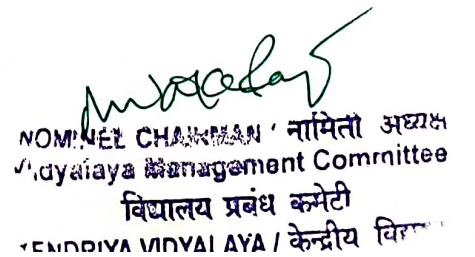 NOMINEE CHAIRMAN / नामिती अध्यक्ष
Vidyalaya Management Committee
विद्यालय प्रबंध कमेटी
KENDRIYA VIDYALAYA / केन्द्रीय